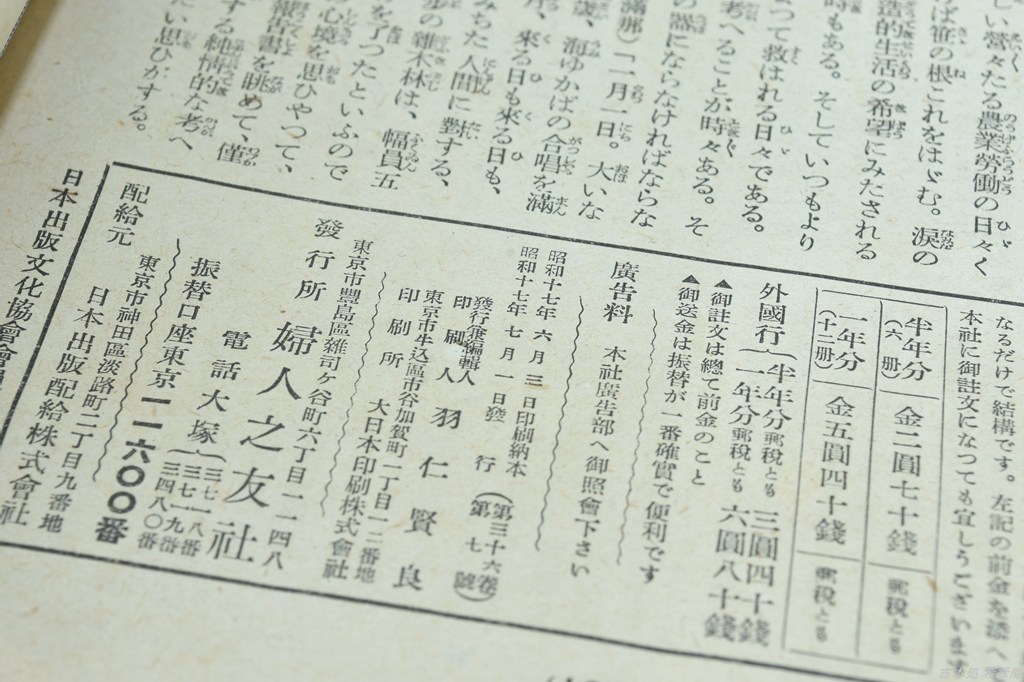 しい營々たる農業勞働の日々く
ば笹の根これをはゞむ。淚の
造的生活の希望にみたされる
時もある。そしていつもより
つて救はれる日々である。
考へることが時々ある。そ
の器にならなければならな
滿那)「一月一日。大いな
歲、海ゆかばの合唱を滿
來る日も來る日も、
みちた人間に對する、
步の雜木林は、幅員五
を了つたといふので
心境を思ひやつて、
報告書を眺めて、僅
する純情的な考へ
たい思ひがする。
なるだけで結構です。左記の前金を添へ
本社に御註文になつても宜しうございます
半年分(六册) 金二圓七十錢 郵稅とも
一年分(十二册) 金五圓四十錢 郵稅とも
外國行 半年分郵稅とも 三圓四十錢
一年分郵稅とも 六圓八十錢
▲御註文は總て前金のこと
▲御送金は振替が一番確實で便利です
廣告料 本社廣告部へ御照會下さい
昭和十七年六月三日印刷納本
昭和十七年七月一日發行 (第三十六卷第七號)
發行兼編輯人
印刷人 羽仁賢良
東京市牛込區市谷加賀町一丁目一二番地
印刷所 大日本印刷株式會社
東京市豐島區雜司ヶ谷町六丁目一一四八
發行所 婦人之友社
電話大塚 三七一八番
三七一九番
三四八〇番
振替口座東京一一六〇〇番
東京市神田區淡路町二丁目九番地
配給元 日本出版配給株式會社
日本出版文化協會會